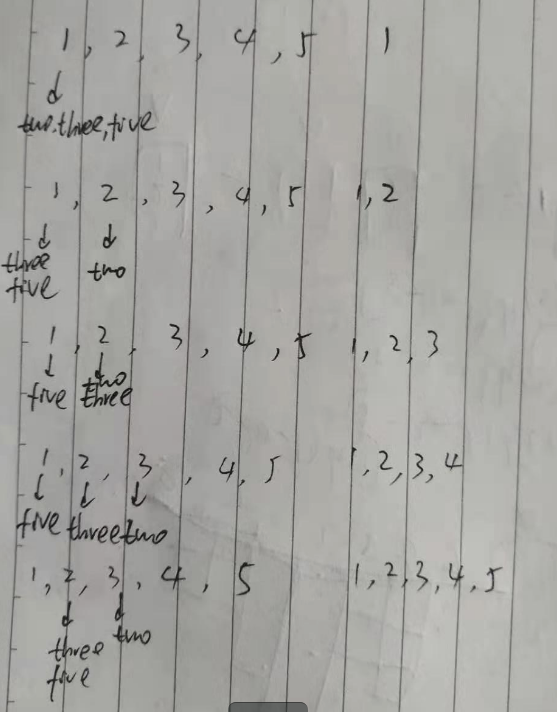 1, 2, 3, 4, 5 1
two, three, five
1, 2, 3, 4, 5 1, 2
three two
five
1, 2, 3, 4, 5 1, 2, 3
five two
three
1, 2, 3, 4, 5 1, 2, 3, 4
five three two
1, 2, 3, 4, 5 1, 2, 3, 4, 5
three two
five